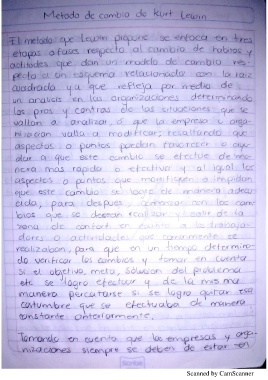 Metodo de cambio de Kurt Lewin
El metodo que Lewin propuso se enfoca en tres
etapas o fases respecto al cambio de habitos y
actitudes que dan un modelo de cambio res-
pecto a un esquema relacionado con la raiz
cuadrada ya que refleja por medio de
un analisis en las organizaciones determinando
los pros y contras de las situaciones que se
vallan a analizar, o que la empresa u orga-
nizacion valla a modificar, resaltando que
aspectos o puntos pueden favorecer o ayu-
dar a que este cambio se efectue de ma-
nera más rapida o efectiva y al igual los
aspectos o puntos que o impidan
que este cambio se logre de manera adec
cida, para despues con los cam
bios que se desean realizar y salir de la
zona de confort en a los trabaja-
dores o actividades que comunmente se
realizaban, para que en un tiempo determina-
do verificar los cambios y tomar en cuenta
si el objetivo, meta, solucion del problema
etc se logro efectuar y de la misma
manera percatarse si se logro quitar esa
costumbre que se efectuaba de manera
constante anteriormente.
Tomando en cuenta que las empresas y orga-
nizaciones siempre se deben de estar en
Scanned by CamScanner